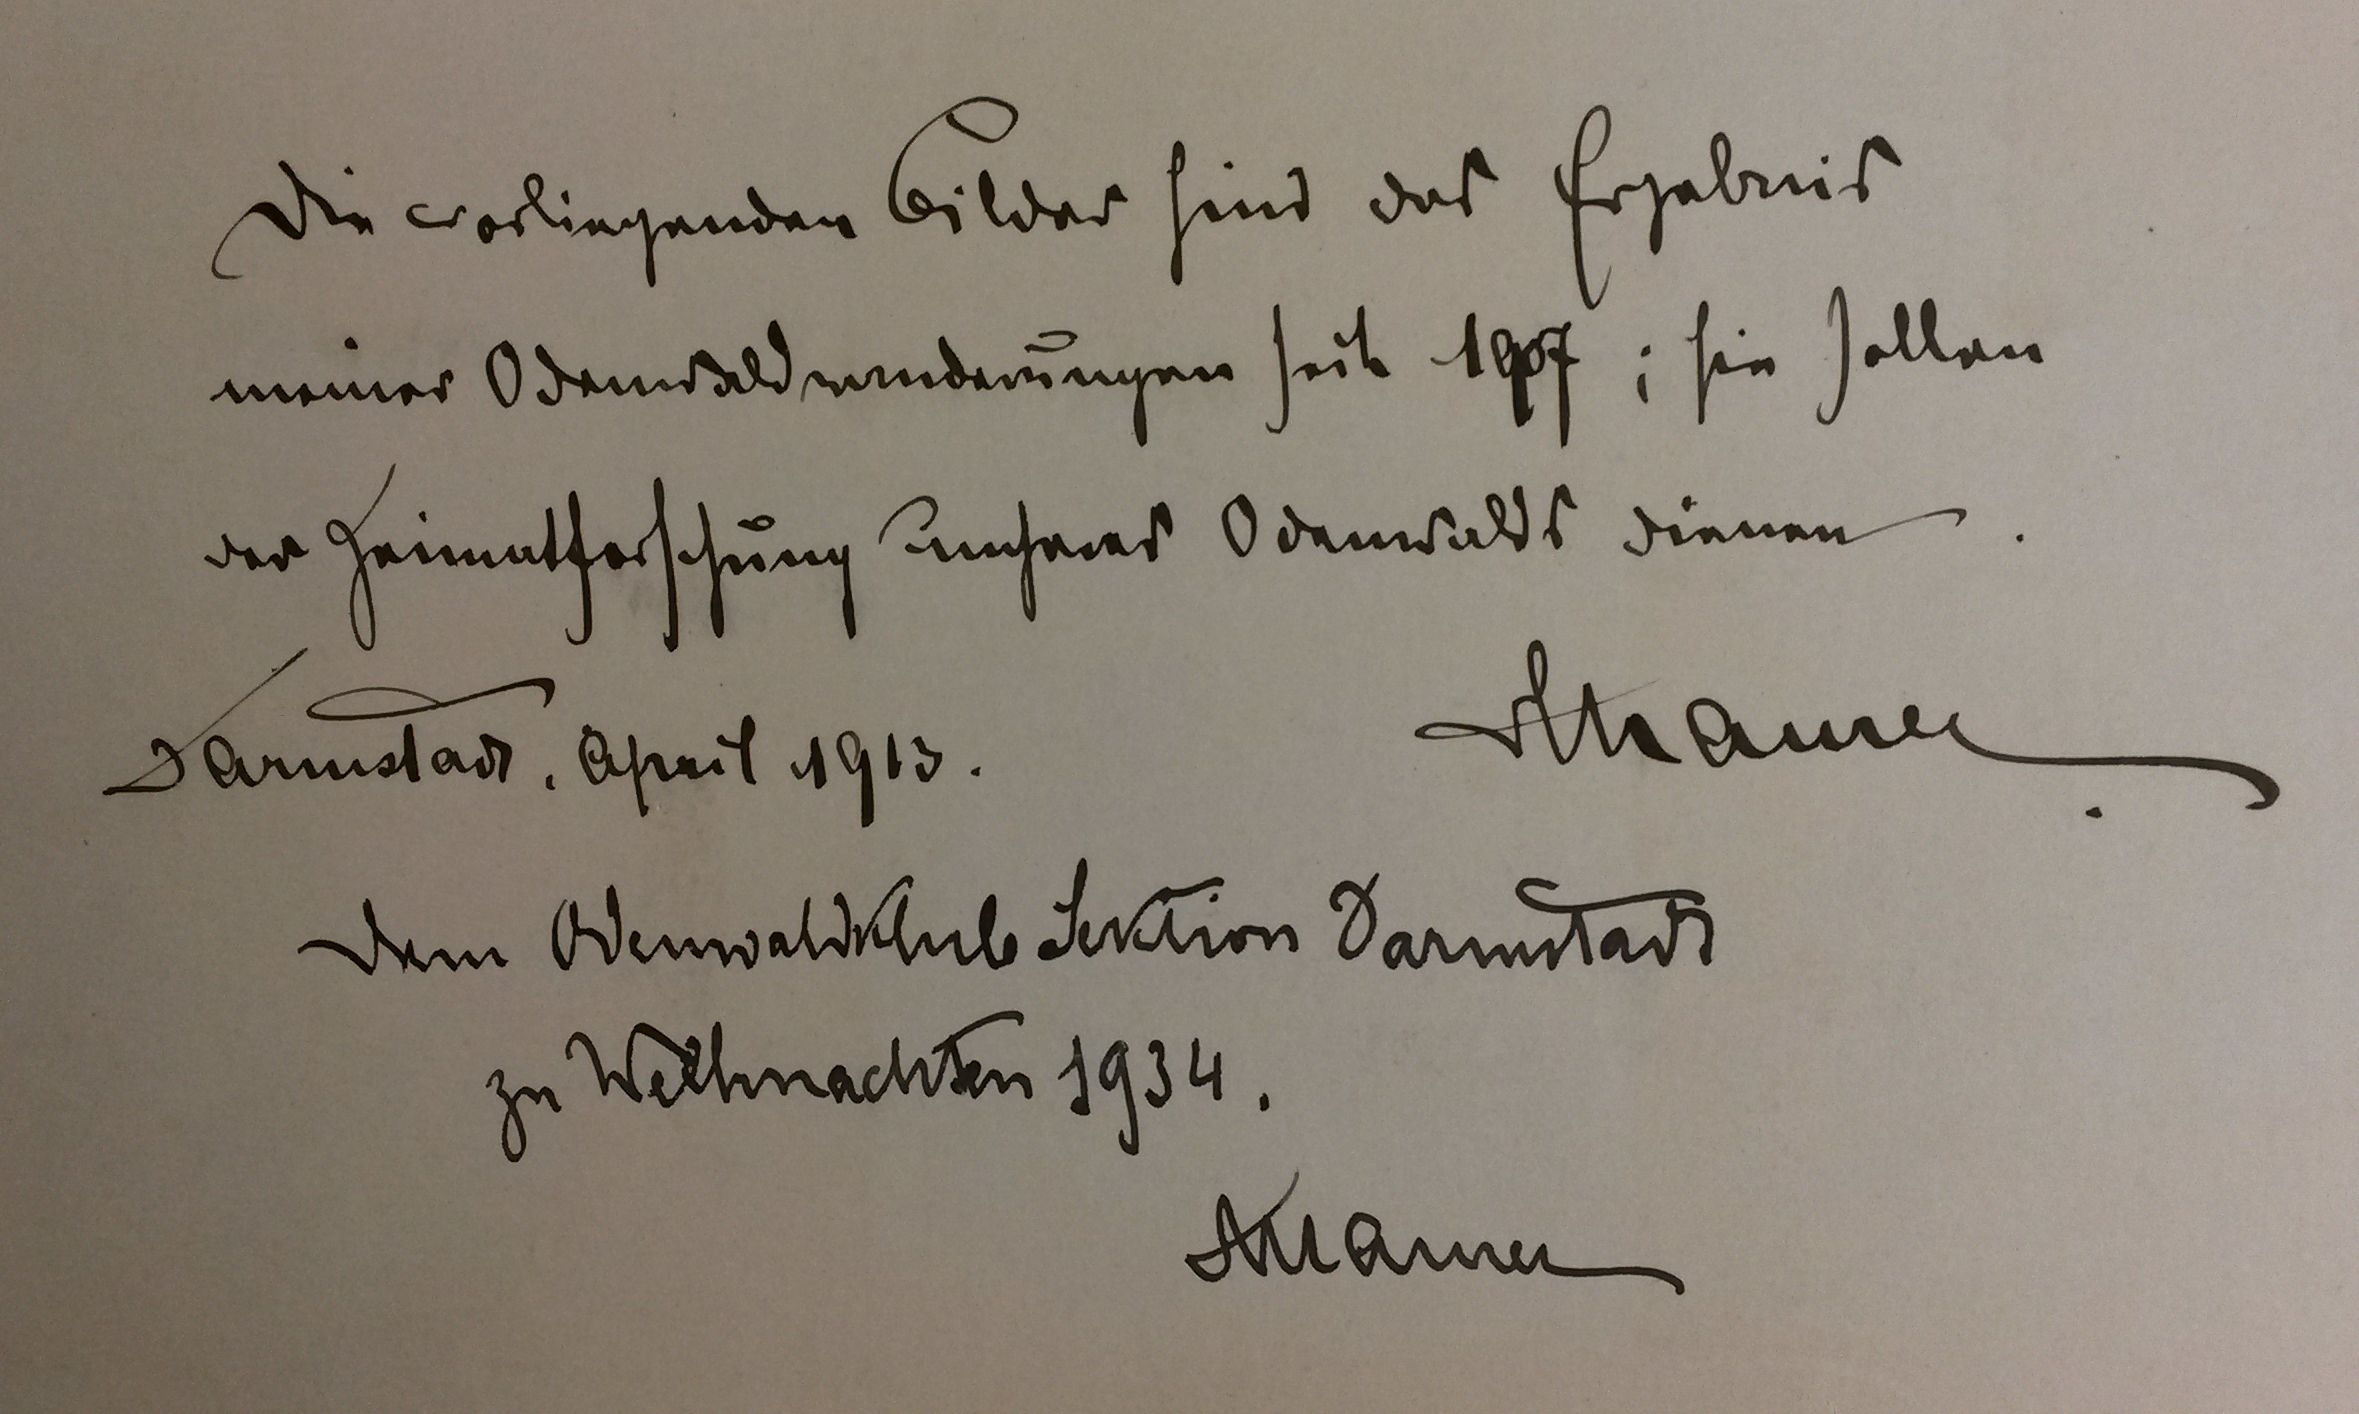 Die vorliegenden Bilder sind das Ergebnis
meiner Odenwaldwanderungen seit 1907; sie sollen
der Heimatforschung unseres Odenwalds dienen.
Darmstadt, April 1913.
Dem Odenwaldklub Sektion Darmstadt
zu Weihnachten 1934.